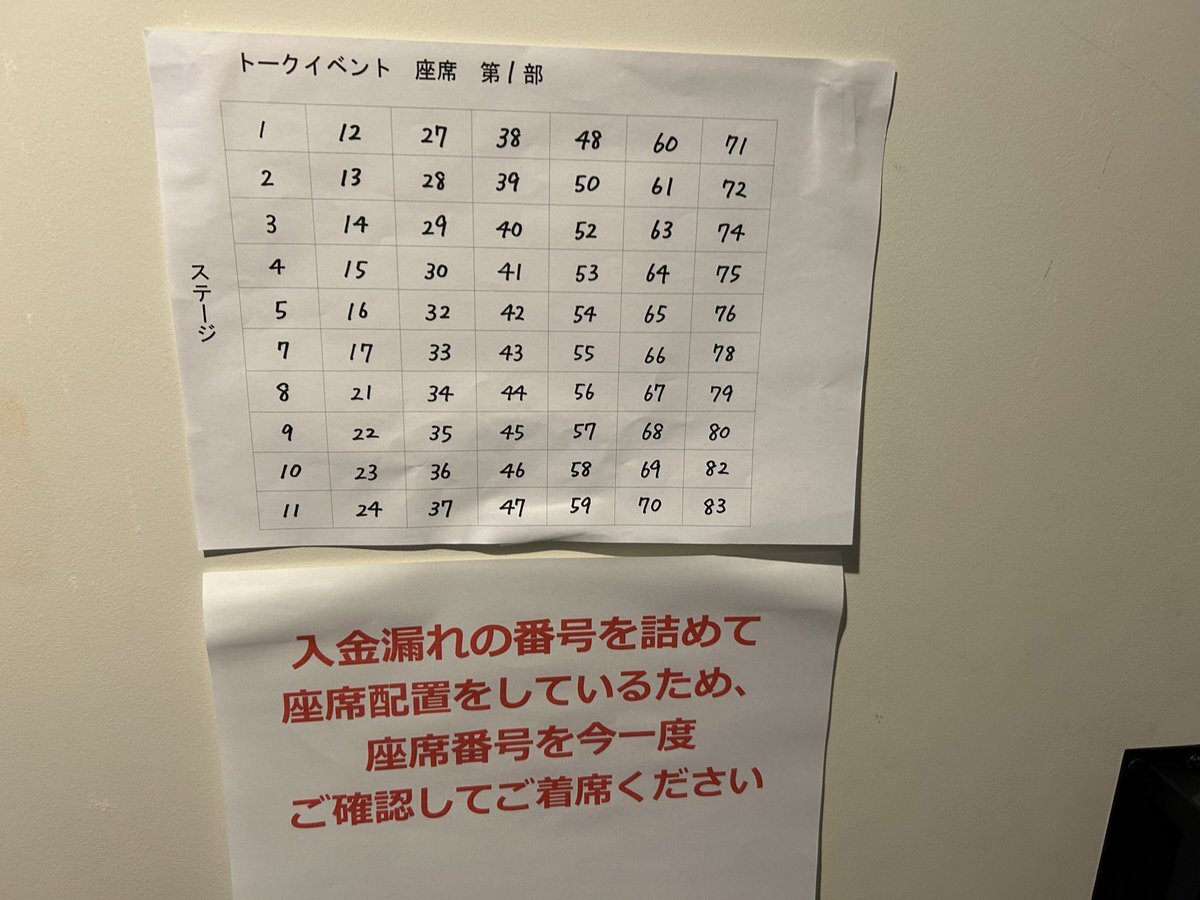 トークイベント 座席 第1部
1 12 27 38 48 60 71
2 13 28 39 50 61 72
3 14 29 40 52 63 74
4 15 30 41 53 64 75
5 16 32 42 54 65 76
7 17 33 43 55 66 78
8 21 34 44 56 67 79
9 22 35 45 57 68 80
10 23 36 46 58 69 82
11 24 37 47 59 70 83
ステージ
入金漏れの番号を詰めて
座席配置をしているため、
座席番号を今一度
ご確認してご着席ください